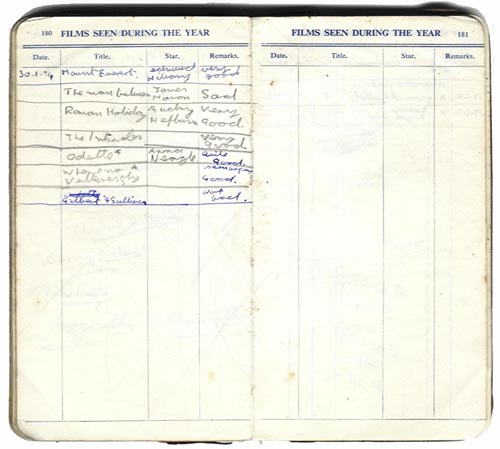 180 FILMS SEEN DURING THE YEAR
Date. Title. Star. Remarks.
30.1.54 Mount Everest. Hillary very good
The man between James Mason Sad
Roman Holiday Audry Hepburn Very Good.
The Intruder very Good
Odette* Anna Neagle Quite Good.
When on a * Good.
Gilbert & Sullivan not bad.
FILMS SEEN DURING THE YEAR 181
Date. Title. Star. Remarks.